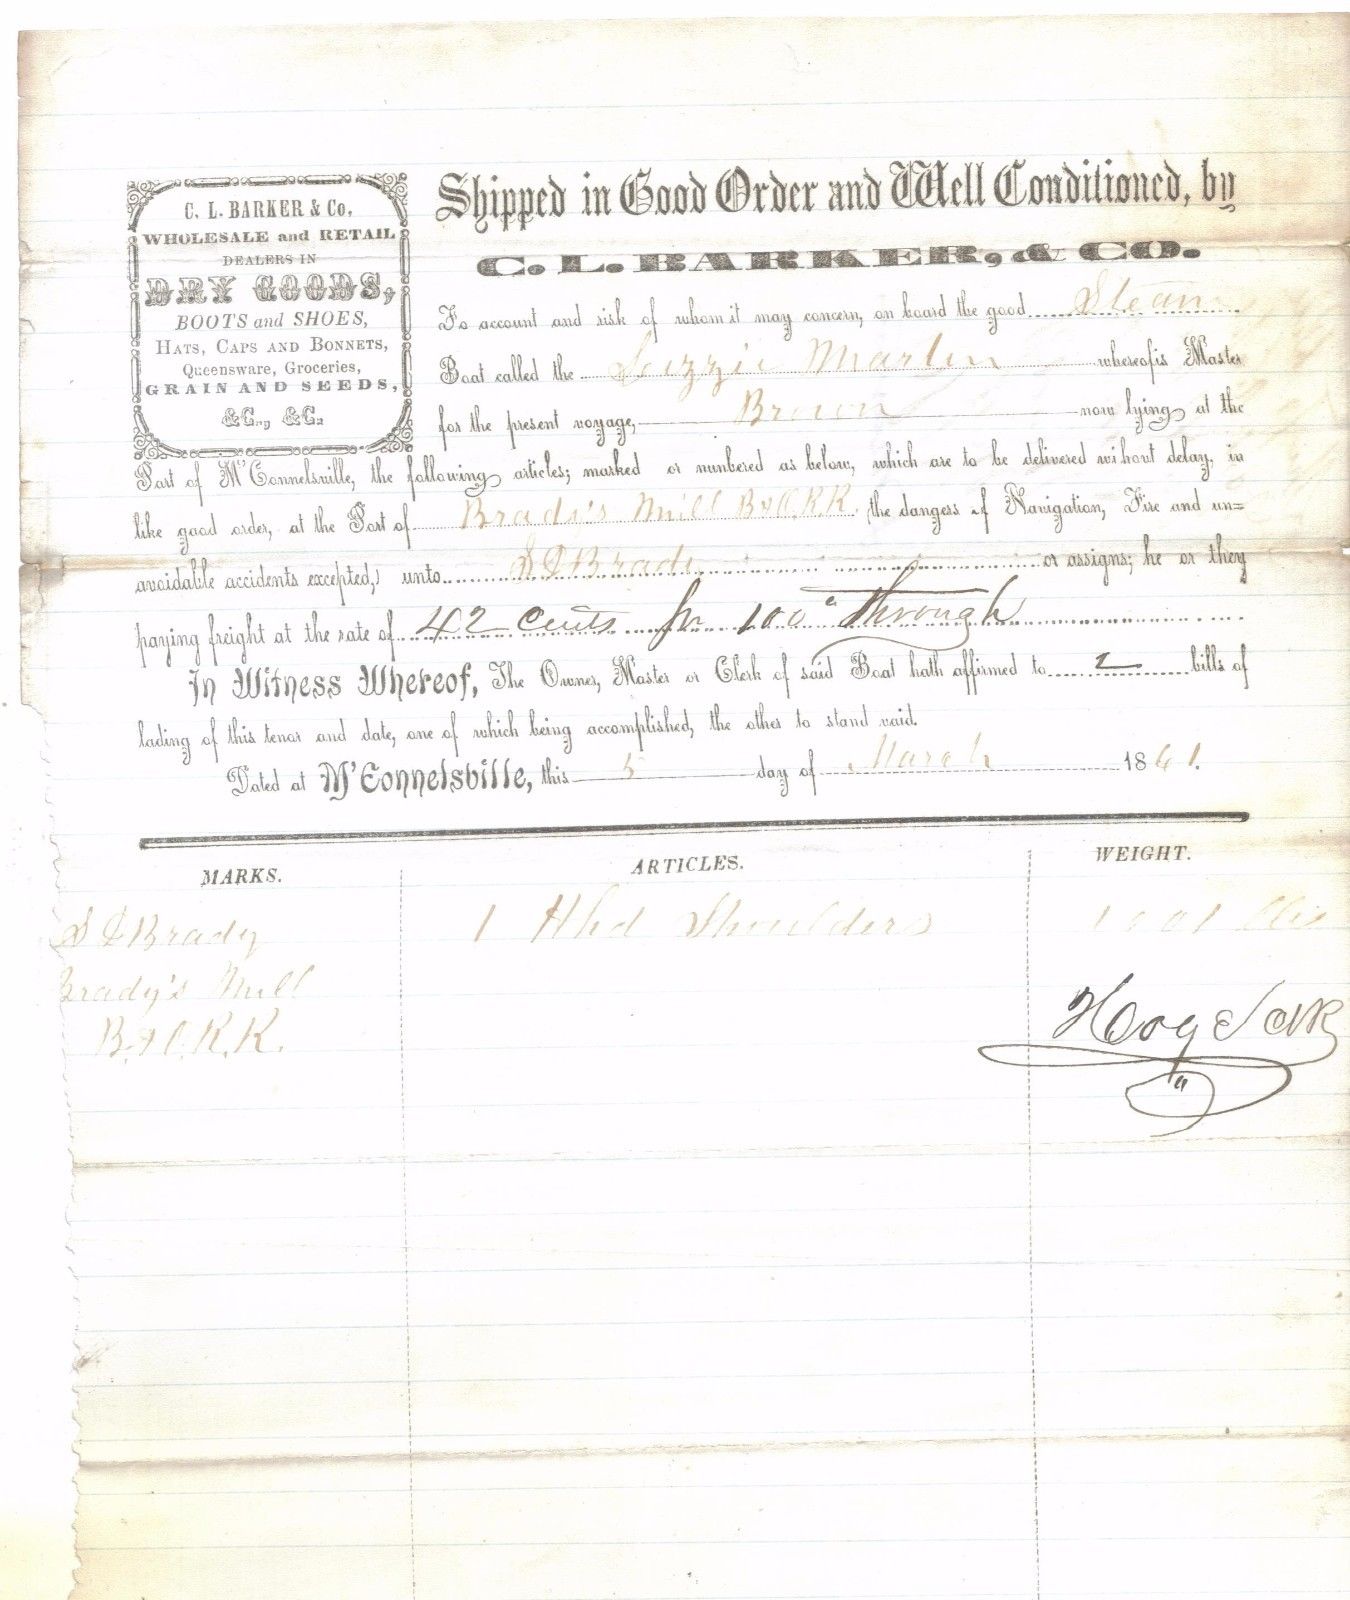 C. L. BARKER & Co.
WHOLESALE and RETAIL
DEALERS IN
DRY GOODS,
BOOTS and SHOES,
HATS, CAPS AND BONNETS,
Queensware, Groceries,
GRAIN AND SEEDS,
&C., &C.
Shipped in Good Order and Well Conditioned, by
C. L. BARKER, & CO.
To account and risk of whom it may concern, on board the good Steam
Boat called the Lizzie Martin whereof is Master
for the present voyage, Brown now lying at the
Port of M'Connelsville, the following articles; marked or numbered as below, which are to be delivered wihout delay, in
like good order, at the Port of Brady's Mill B&O.R.R. (the dangers of Navigation, Fire and un=
avoidable accidents excepted,) unto S D Brady or assigns; he or they
paying freight at the rate of 42 cents for 100" through
In Witness Whereof, The Owner, Master or Clerk of said Boat hath affirmed to 2 bills of
lading of this tenor and date, one of which being accomplished, the other to stand void.
Dated at M'Connelsville, this 5 day of March 1861.
MARKS. ARTICLES. WEIGHT.
S D Brady 1 Hhd Shoulders 1001 lbs
Brady's Mill
B&O.R.R.